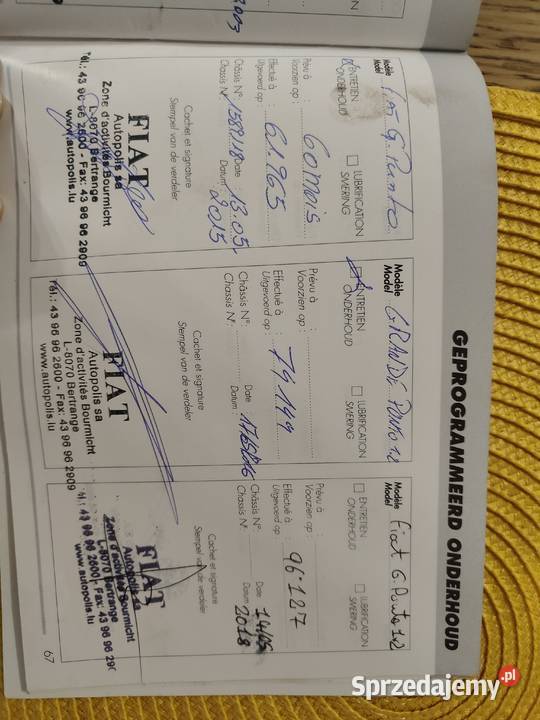 GEPROGRAMMEERD ONDERHOUD
Modèle
Model
Fiat G. Punto
ENTRETIEN
ONDERHOUD
LUBRIFICATION
SMERING
Prévu à :
Voorzien op :
60 mois
Effectué à :
Uitgevoerd op :
61.965
Châssis N° Date
Chassis N° Datum
13.05
2015
Cachet et signature
Stempel van de verdeler
FIAT
Autopolis sa
Zone d'activités Bourmicht
L-8070 Bertrange
Tél.: 43 96 96 2600 - Fax: 43 96 96 2909
www.autopolis.lu
Modèle
Model
GRANDE PUNTO 1.2
ENTRETIEN
ONDERHOUD
LUBRIFICATION
SMERING
Prévu à :
Voorzien op :
Effectué à :
Uitgevoerd op :
74149
Châssis N° : Date
Chassis N° : Datum :
Cachet et signature
Stempel van de verdeler
FIAT
Autopolis sa
Zone d'activités Bourmicht
L-8070 Bertrange
Tél.: 43 96 96 2600 - Fax: 43 96 96 2909
www.autopolis.lu
Modèle
Model
Fiat G. Punto 1.2
ENTRETIEN
ONDERHOUD
LUBRIFICATION
SMERING
Prévu à :
Voorzien op :
Effectué à :
Uitgevoerd op :
96.127
Châssis N° : Date
Chassis N° : Datum
14/05
2018
Cachet et signature
Stempel van de verdeler
FIAT
Autopolis sa
Zone d'activités Bourmicht
L-8070 Bertrange
43 96 96 2600 - Fax: 43 96 96 290
www.autopolis.lu
67
Sprzedajemy.pl